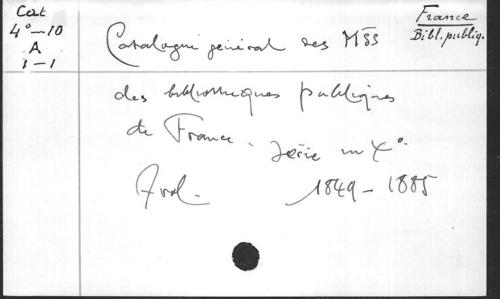 Cat
4°—10
A
1—1
France
Bibl. publiq.
Catalogue général des MSS
des bibliothèques publiques
de France. Série in 4°.
7 vol. 1849 - 1885